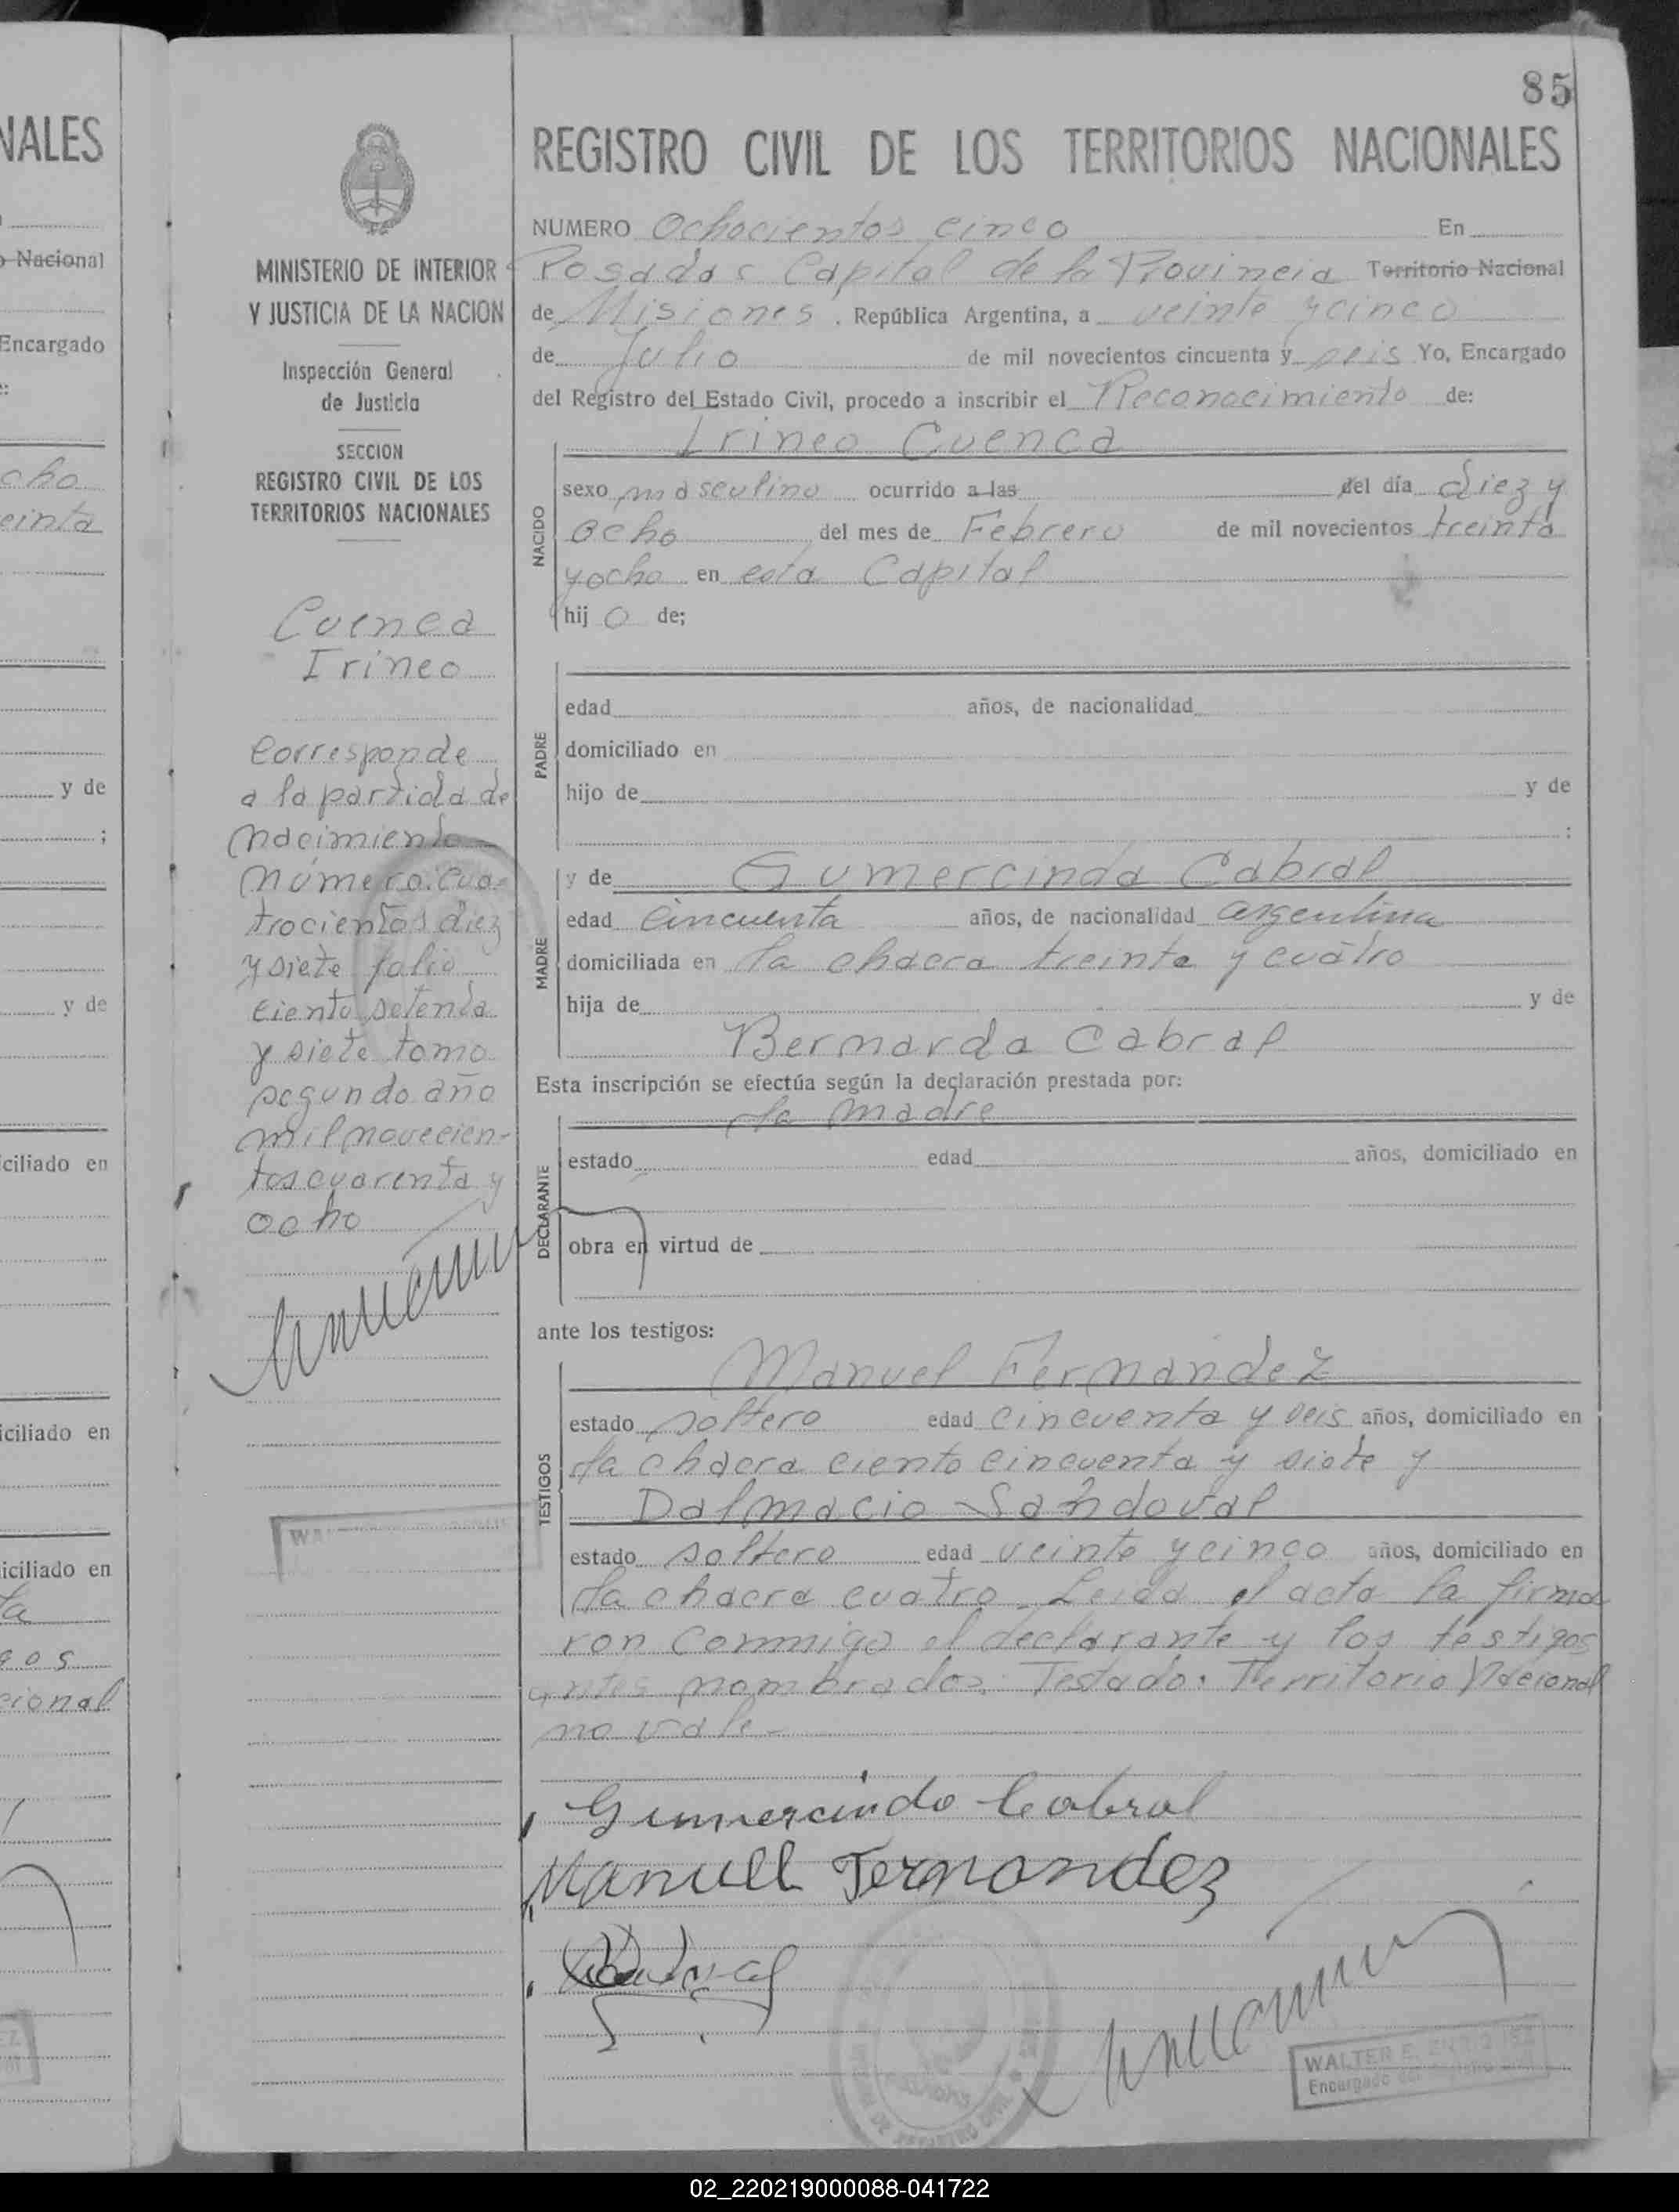 85
REGISTRO CIVIL DE LOS TERRITORIOS NACIONALES
NUMERO Ochocientos cinco En
Posadas Capital de la Provincia Territorio Nacional
de Misiones. República Argentina, a veinte y cinco
de Julio de mil novecientos cincuenta y seis Yo, Encargado
del Registro del Estado Civil, procedo a inscribir el Reconocimiento de:
Irineo Cuenca
NACIDO
sexo masculino ocurrido a las del día diez y
ocho del mes de Febrero de mil novecientos treinta
y ocho en esta Capital
hij o de;
PADRE
edad años, de nacionalidad
domiciliado en
hijo de y de
:
MADRE
y de Gumercinda Cabral
edad cincuenta años, de nacionalidad argentina
domiciliada en la chacra treinta y cuatro
hija de y de
Bermarda Cabral
Esta inscripción se efectúa según la declaración prestada por:
la madre
DECLARANTE
estado edad años, domiciliado en
obra en virtud de
ante los testigos:
TESTIGOS
Manuel Fernandez
estado soltero edad cincuenta y seis años, domiciliado en
la chacra ciento cincuenta y siete y
Dalmacio Sandoval
estado soltero edad veinte y cinco años, domiciliado en
la chacra cuatro. Leida el acta la firma
ron conmigo el declarante y los testigos
antes nombrados. Testado: Territorio Nacional
no vale-
Gumercindo Cabral
Manuell Fernandez
WALTER E. ENRIQUEZ
Encargado del
MINISTERIO DE INTERIOR
Y JUSTICIA DE LA NACION
Inspección General
de Justicia
SECCION
REGISTRO CIVIL DE LOS
TERRITORIOS NACIONALES
Cuenca
Irineo
Corresponde
a la partida de
nacimiento
número. cua-
trocientos diez
y siete folio
ciento setenta
y siete tomo
segundo año
mil novecien-
tos cuarenta y
ocho
NALES
Nacional
Encargado
cho
einta
y de
;
y de
ciliado en
iciliado en
iciliado en
ta
gos
cional
02_220219000088-041722